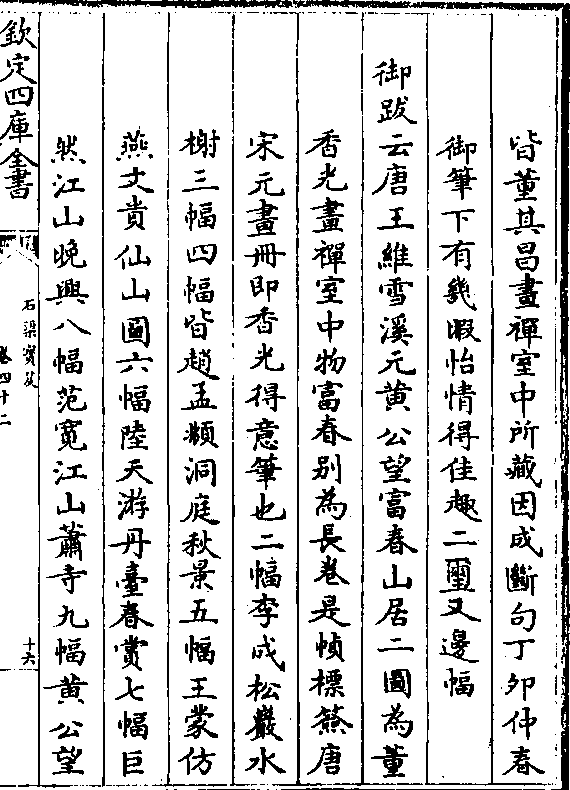 皆董其昌畫禪室中所藏因成斷句丁卯仲春
御筆下有幾暇怡情得佳趣二璽又邊幅
御跋云唐王維雪溪元黄公望富春山居二圖為董
香光畫禪室中物富春别為長卷是幀標簽唐
宋元畫冊即香光得意筆也二幅李成松巖水
榭三幅四幅皆趙孟頫洞庭秋景五幅王蒙仿
燕文貴仙山圖六幅陸天游丹臺春賞七幅巨
然江山晚興八幅范寛江山蕭寺九幅黄公望
欽定四庫全書
石渠寶笈
卷四十二
十六